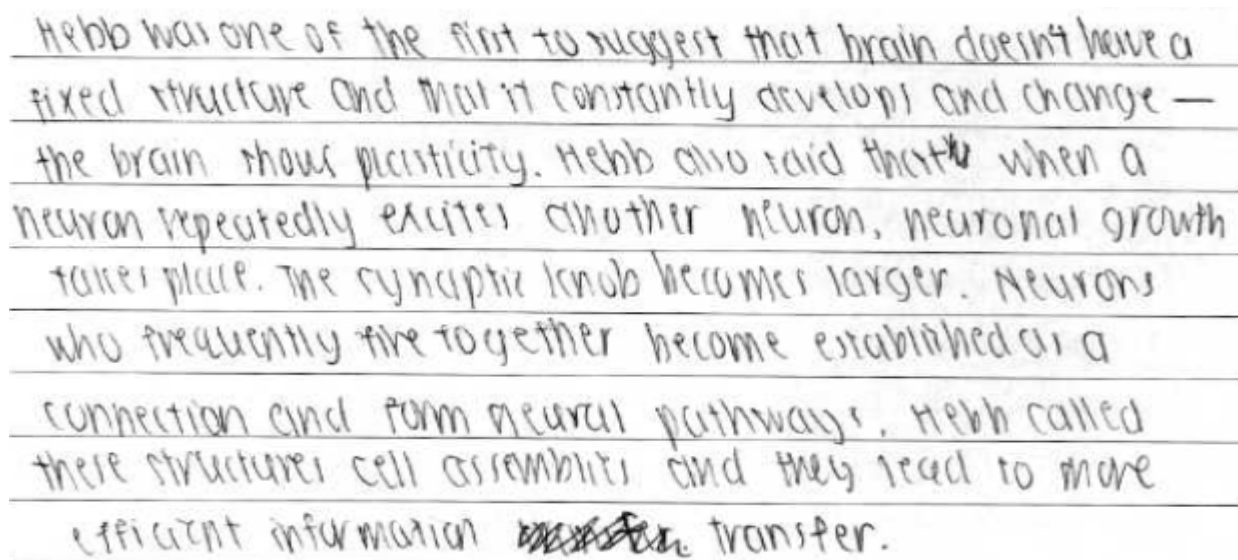 Hebb was one of the first to suggest that brain doesn't have a
fixed structure and that it constantly develops and change —
the brain shows plasticity. Hebb also said that when a
neuron repeatedly excites another neuron, neuronal growth
takes place. The synaptic knob becomes larger. Neurons
who frequently fire together become established as a
connection and form neural pathways. Hebb called
these structures cell assemblies and they lead to more
efficient information transfer.